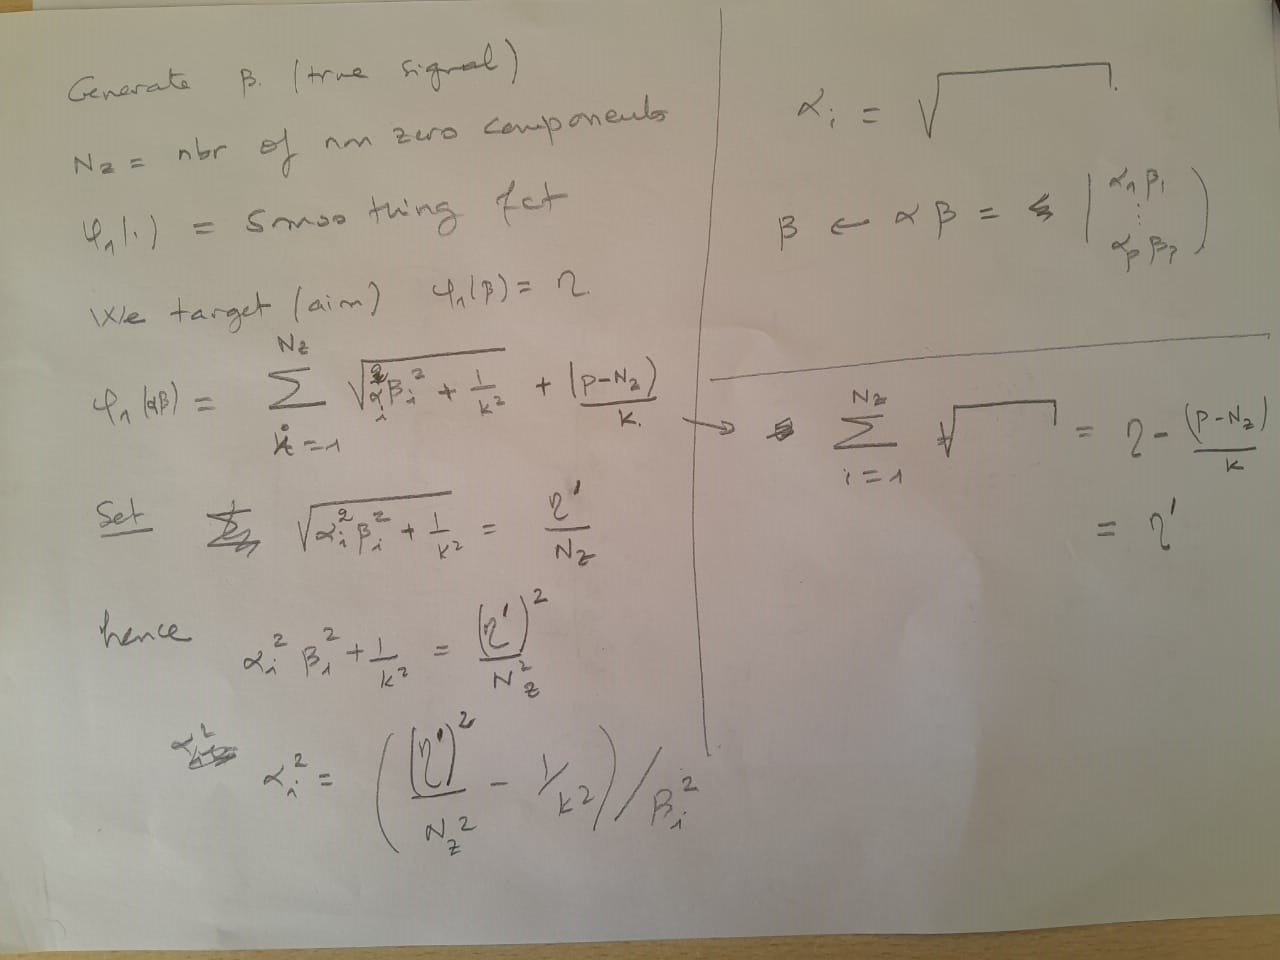 Generate β. (true signal)
Nz = nbr of non zero components
φ₁(.) = Smoothing fct
We target (aim) φ₁(β) = η.
φ₁(αβ) = ∑_{i=1}^{Nz} √(αᵢ² βᵢ² + 1/k²) + (p-Nz)/k.
Set √(αᵢ² βᵢ² + 1/k²) = η'/Nz
hence αᵢ² βᵢ² + 1/k² = (η')²/Nz²
αᵢ² = ((η')²/Nz² - 1/k²) / βᵢ²
αᵢ = √
β ← αβ = (α₁β₁ ⋮ αpβp)
→ ∑_{i=1}^{Nz} √ = η - (p-Nz)/k
= η'